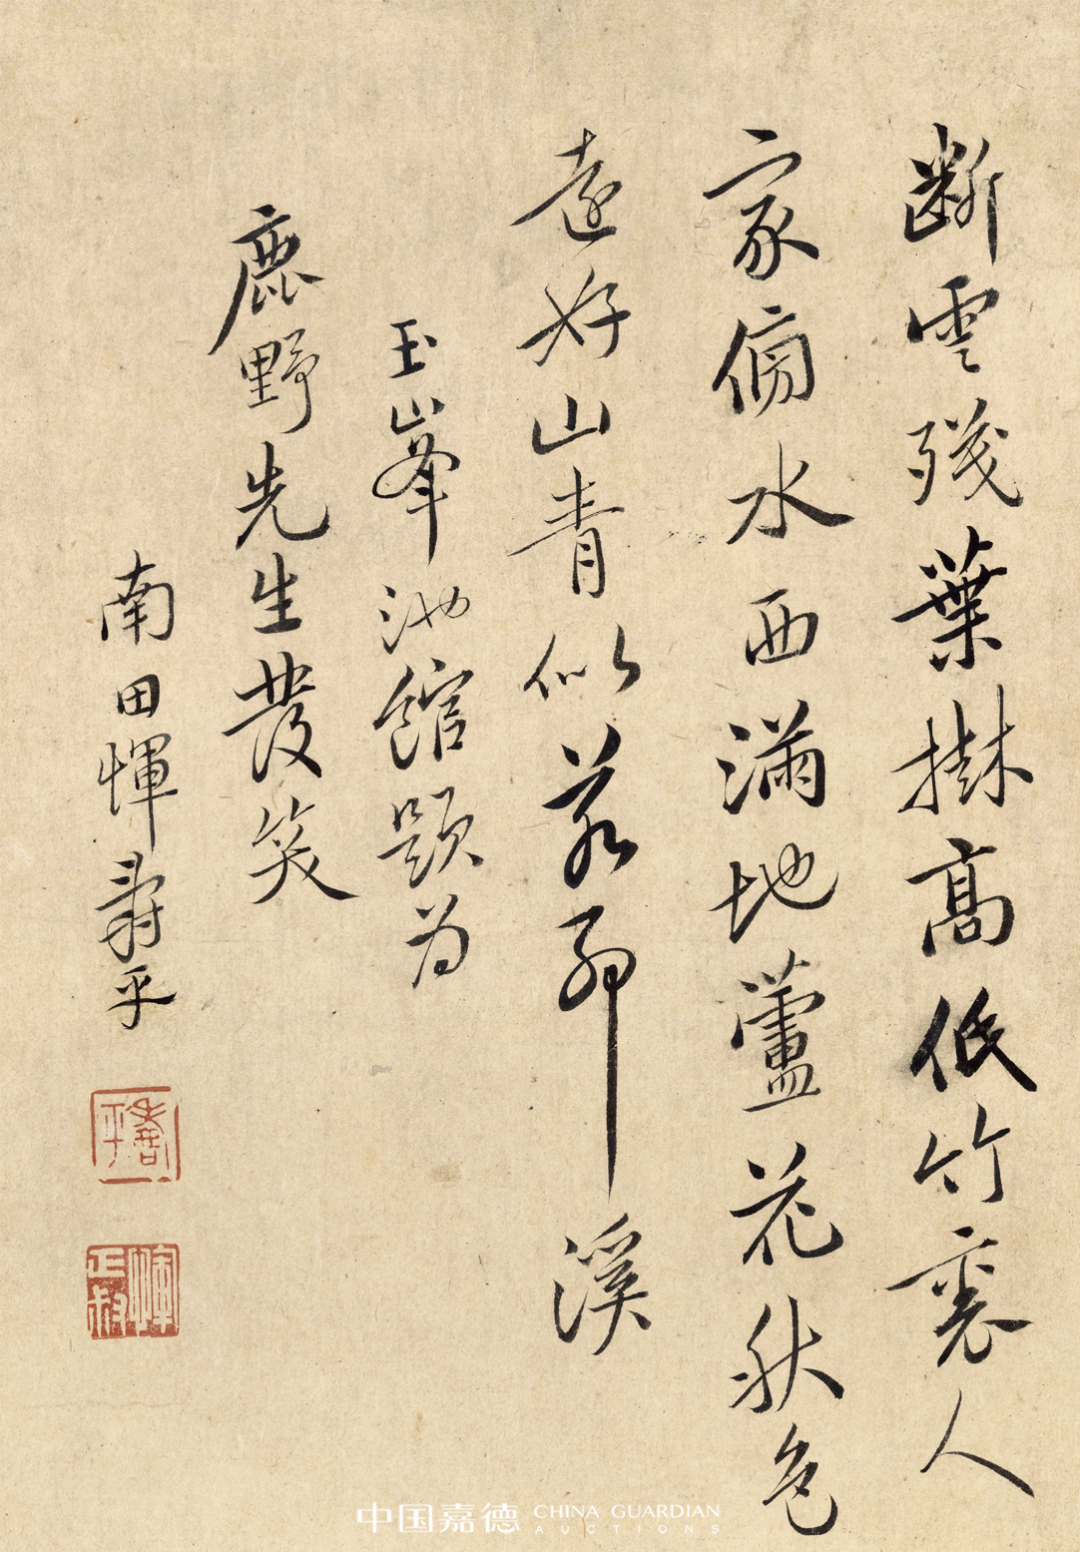 斷雲殘葉樹高低竹裏人
家傍水西滿地蘆花秋色
遠好山青似若耶溪
玉峯池館題為
鹿野先生發笑
南田惲壽平
壽平
惲正叔
中国嘉德 CHINA GUARDIAN
AUCTIONS